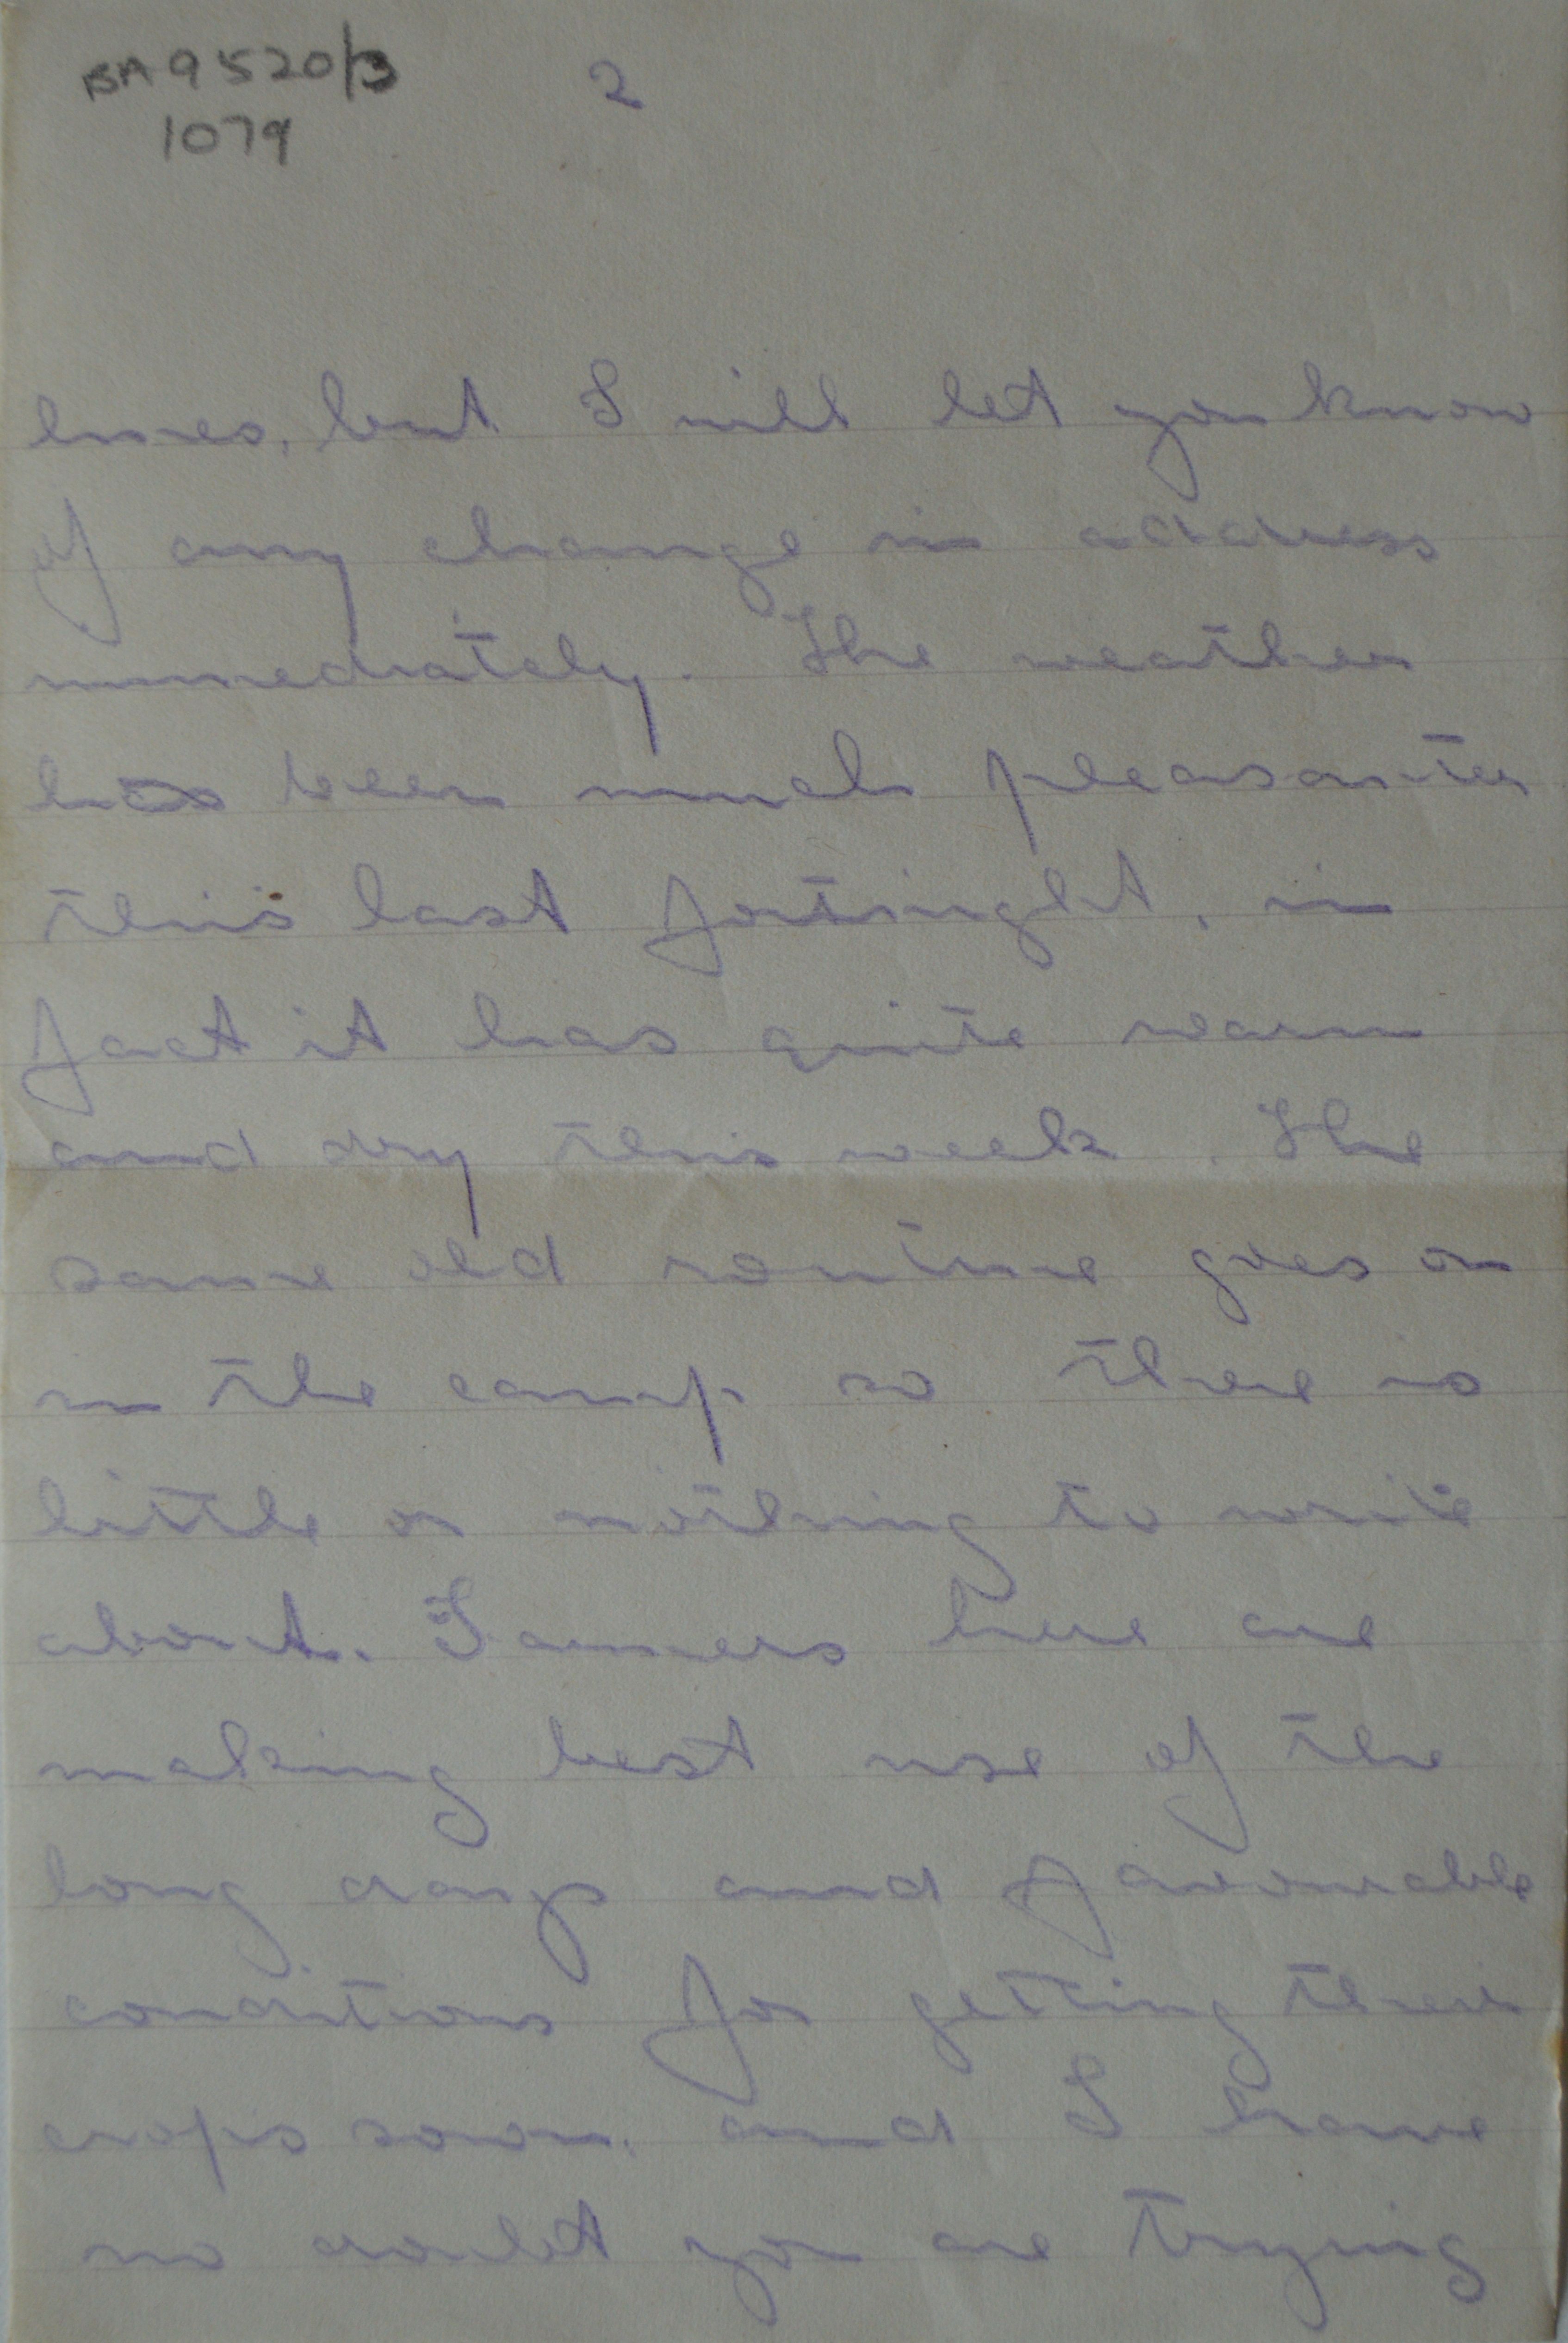 BA 9520/3
1079
2
lines, but I will let you know
of any change in address
immediately. The weather
has been much pleasanter
this last fortnight, in
fact it has quite warm
and dry this week. The
same old routine goes on
in the camp so there is
little or nothing to write
about. Farmers here are
making best use of the
long days and favourable
conditions for getting their
crops sown, and I have
no doubt you are trying